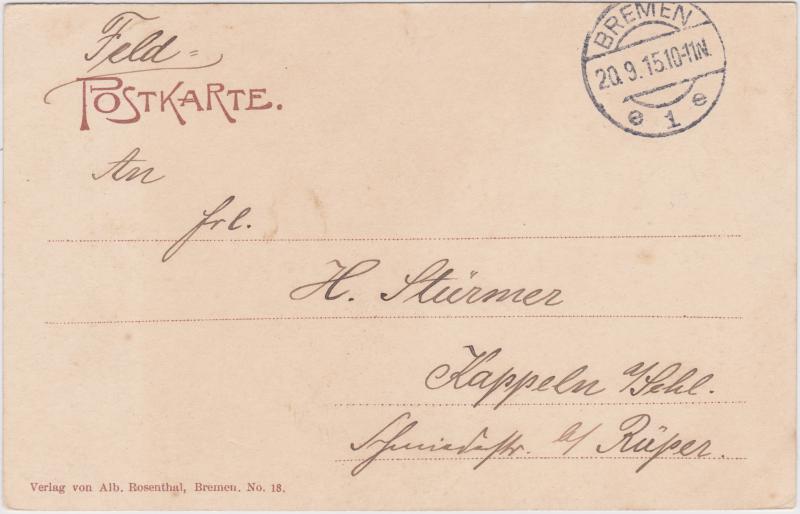 Feld=
POSTKARTE.
BREMEN
20.9.15.10-11N.
e 1 e
An
Frl.
H. Stürmer
Kappeln a/Schl.
Schmiedestr. b/ Rüper.
Verlag von Alb. Rosenthal, Bremen. No. 18.